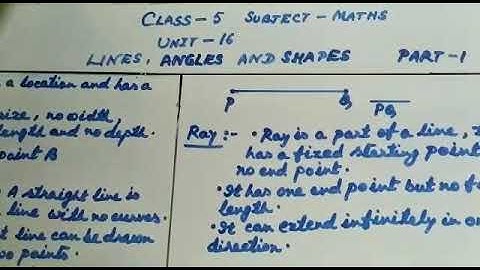 CLASS-5 SUBJECT-MATHS
UNIT-16
LINES, ANGLES AND SHAPES PART-1
a location and has a
size, no width,
length and no depth.
point B
A straight line is
line with no curves.
t line can be drawn
wo points.
P Q PQ
Ray:- • Ray is a part of a line,
has a fixed starting point
no end point.
• It has one end point but no f
length.
• It can extend infinitely in on
direction.